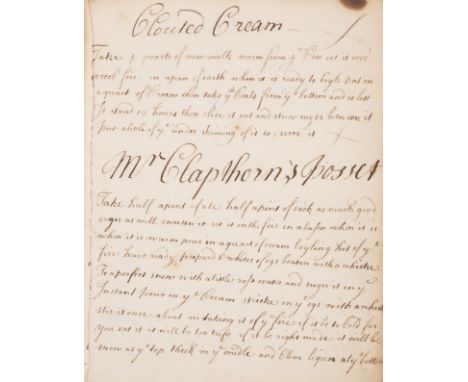 Clouted Cream
Take 4 quarts of new milk warm from ye Cow set it over
a cool fire in a pan of earth when it is ready to boyle put in
a quart of Cream then take ye Coals from ye bottom and so lett
It stand 12 hours then slice it out and strew suger between it
put a litle of ye under skiming of it so serve it
Mrs Clapthorn's Posset
Take half a pint of ale half a pint of sack as much good
suger as will sweeten it set it on the fire in a bason when it is
when it is warm pour in a quart of cream boyling hot of ye
fire have ready prepard 8 whites of egs beaten with a whiske
To a perfect snow with a litle rose water and suger it in ye
Instant pour in ye Cream stricke in ye egs with a whisk
stir it once about in taking it of ye fire if it be to Cold for
you eat it it will be too tuff if it be right made it will be
snow at ye top thick in ye midle and Clear liquor at ye bottom